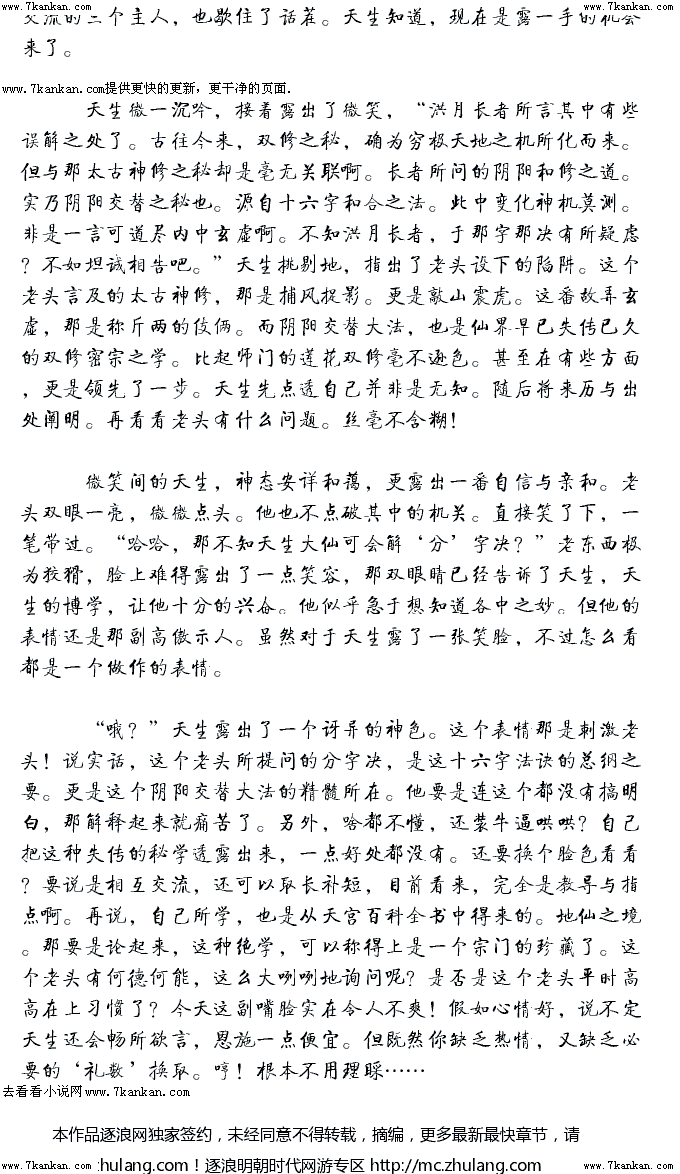 www.7kankan.com www.7kankan.com www.7kankan.com
交流的三个主人，也歇住了话茬。天生知道，现在是露一手的机会
来了。
www.7kankan.com提供更快的更新，更干净的页面.
天生微一沉吟，接着露出了微笑，“洪月长者所言其中有些
误解之处了。古往今来，双修之秘，确为穷极天地之机所化而来。
但与那太古神修之秘却是毫无关联啊。长者所问的阴阳和修之道。
实乃阴阳交替之秘也。源自十六字和合之法。此中变化神机莫测。
非是一言可道尽内中玄虚啊。不知洪月长者，于那字那决有所疑虑
？不如坦诚相告吧。”天生挑剔地，指出了老头设下的陷阱。这个
老头言及的太古神修，那是捕风捉影。更是敲山震虎。这番故弄玄
虚，那是称斤两的伎俩。而阴阳交替大法，也是仙界早已失传已久
的双修密宗之学。比起师门的莲花双修毫不逊色。甚至在有些方面
，更是领先了一步。天生先点透自己并非是无知。随后将来历与出
处阐明。再看看老头有什么问题。丝毫不含糊！
微笑间的天生，神态安详和蔼，更露出一番自信与亲和。老
头双眼一亮，微微点头。他也不点破其中的机关。直接笑了下，一
笔带过。“哈哈，那不知天生大仙可会解‘分’字决？”老东西极
为狡猾，脸上难得露出了一点笑容，那双眼睛已经告诉了天生，天
生的博学，让他十分的兴奋。他似乎急于想知道各中之妙。但他的
表情还是那副高傲示人。虽然对于天生露了一张笑脸，不过怎么看
都是一个做作的表情。
“哦？”天生露出了一个讶异的神色。这个表情那是刺激老
头！说实话，这个老头所提问的分字决，是这十六字法诀的总纲之
要。更是这个阴阳交替大法的精髓所在。他要是连这个都没有搞明
白，那解释起来就痛苦了。另外，啥都不懂，还装牛逼哄哄？自己
把这种失传的秘学透露出来，一点好处都没有。还要换个脸色看看
？要说是相互交流，还可以取长补短，目前看来，完全是教导与指
点啊。再说，自己所学，也是从天宫百科全书中得来的。地仙之境
。那要是论起来，这种绝学，可以称得上是一个宗门的珍藏了。这
个老头有何德何能，这么大咧咧地询问呢？是否是这个老头平时高
高在上习惯了？今天这副嘴脸实在令人不爽！假如心情好，说不定
天生还会畅所欲言，恩施一点便宜。但既然你缺乏热情，又缺乏必
要的‘礼数’换取。哼！根本不用理睬……
去看看小说网www.7kankan.com
本作品逐浪网独家签约，未经同意不得转载，摘编，更多最新最快章节，请
www.7kankan.com zhulang.com！逐浪明朝时代网游专区 http://mc.zhulang.com www.7kankan.com